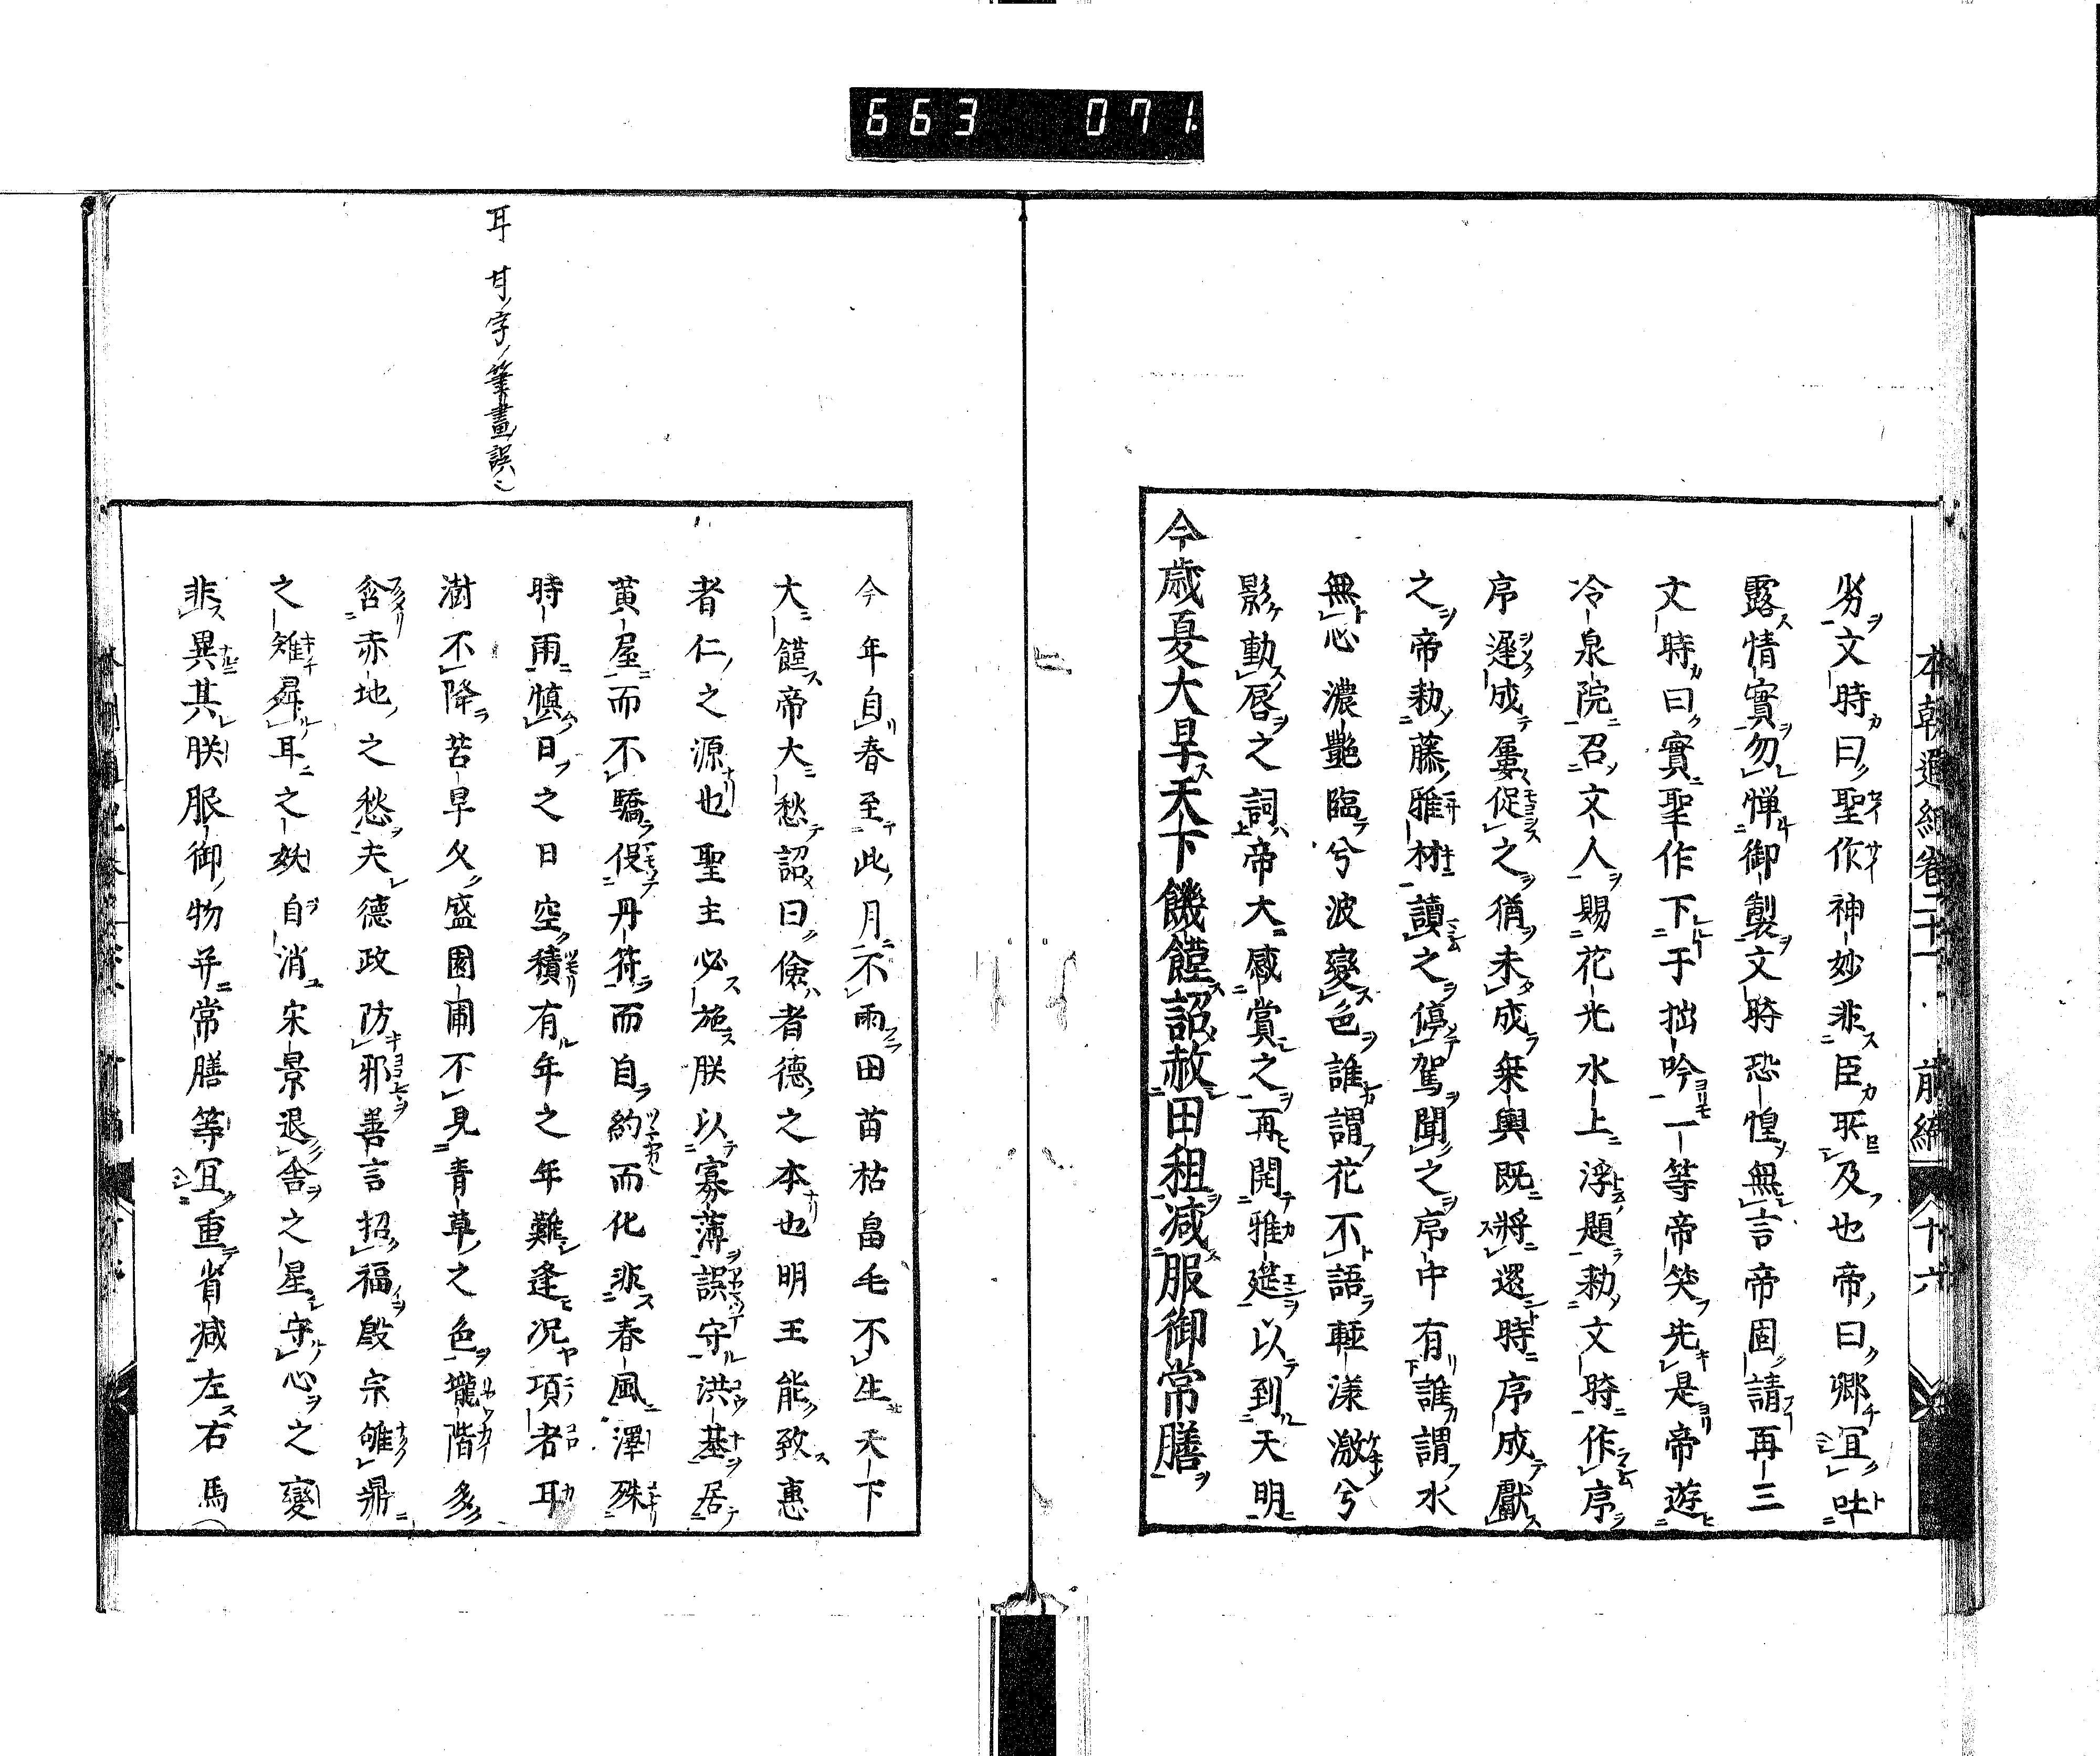 663 071
本朝通紀卷二十一 前編 十六
劣文時曰聖作神妙非臣所及也帝曰卿宜吐
露情實勿憚御製文時恐惶無言帝固請再三
文時曰實聖作下于拙吟一等帝笑先是帝遊
冷泉院召文人賜花光水上浮題勅文時作序
序遲成屢促之猶未成乗輿既將還時序成獻
之帝勅藤雅材讀之停駕聞之序中有誰謂水
無心濃艷臨兮波變色誰謂花不語輕漾激兮
影動唇之詞帝大感賞之再開雅筵以到天明
今歳夏大旱天下饑饉詔赦田租減服御常膳
今年自春至此月不雨田苗枯畠毛不生天下
大饉帝大愁詔曰儉者德之本也明王能致惠
者仁之源也聖主必施朕以寡薄誤守洪基居
黄屋而不驕俣丹符而自約而化非春風澤殊
時雨慎日之日空積有年之年難逢况項者耳
澍不降苦旱久盛園圃不見青草之色壠階多
含赤地之愁夫德政防邪善言招福殷宗雊鼎
之雉弭耳之妖自消宋景退舎之星守心之變
非異其朕服御物并常膳等宜重省減左右馬
耳 甘ノ字ノ筆畫誤ル